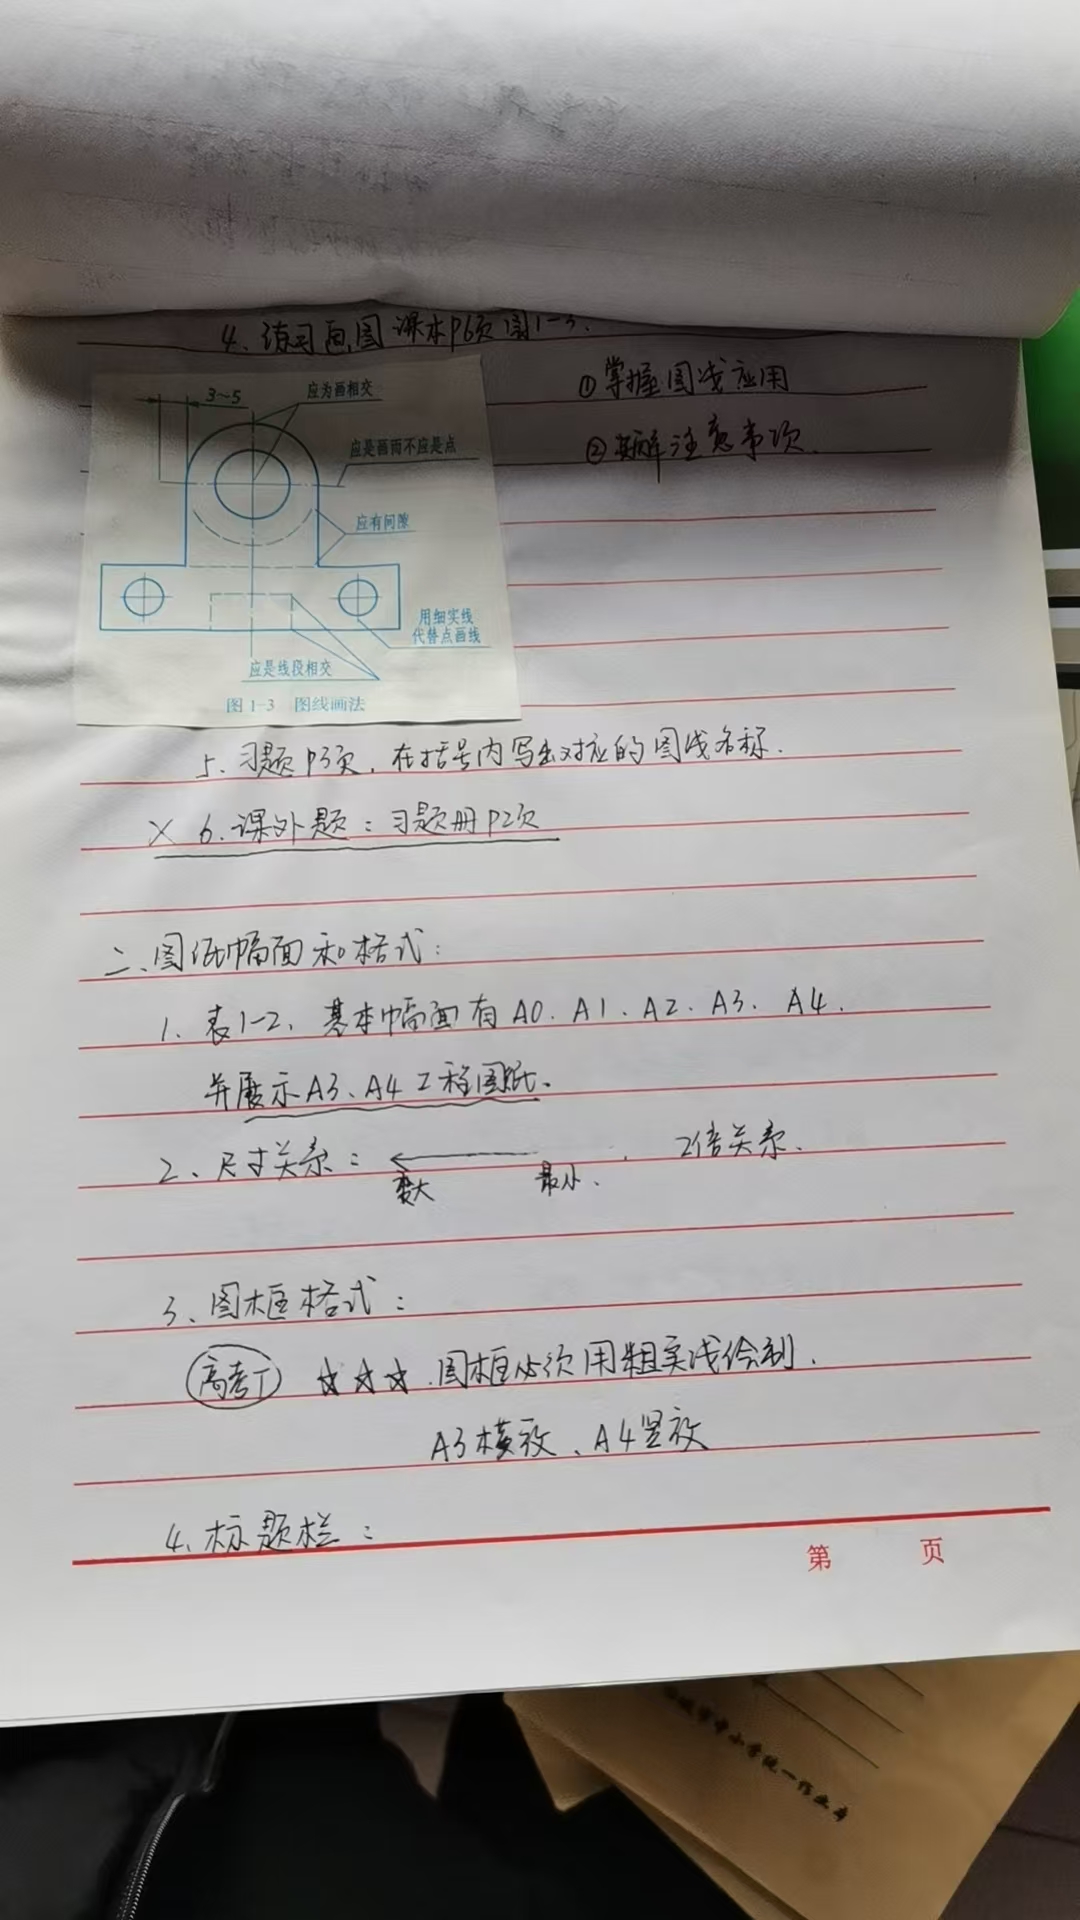 4、练习画图 课本P6页图1-3.
①掌握图线应用
②理解注意事项.
3~5
应为画相交
应是画而不应是点
应有间隙
用细实线
代替点画线
应是线段相交
图1-3 图线画法
5、习题P3页，在括号内写出对应的图线名称.
× 6.课外题：习题册P2页
二、图纸幅面和格式：
1、表1-2、基本幅面有A0、A1、A2、A3、A4.
并展示A3、A4工程图纸。
2、尺寸关系： ← . 2倍关系.
变大 最小.
3、图框格式：
高考T ☆☆☆.图框必须用粗实线绘制.
A3横放、A4竖放
4、标题栏：
第 页
中小学统一作业本